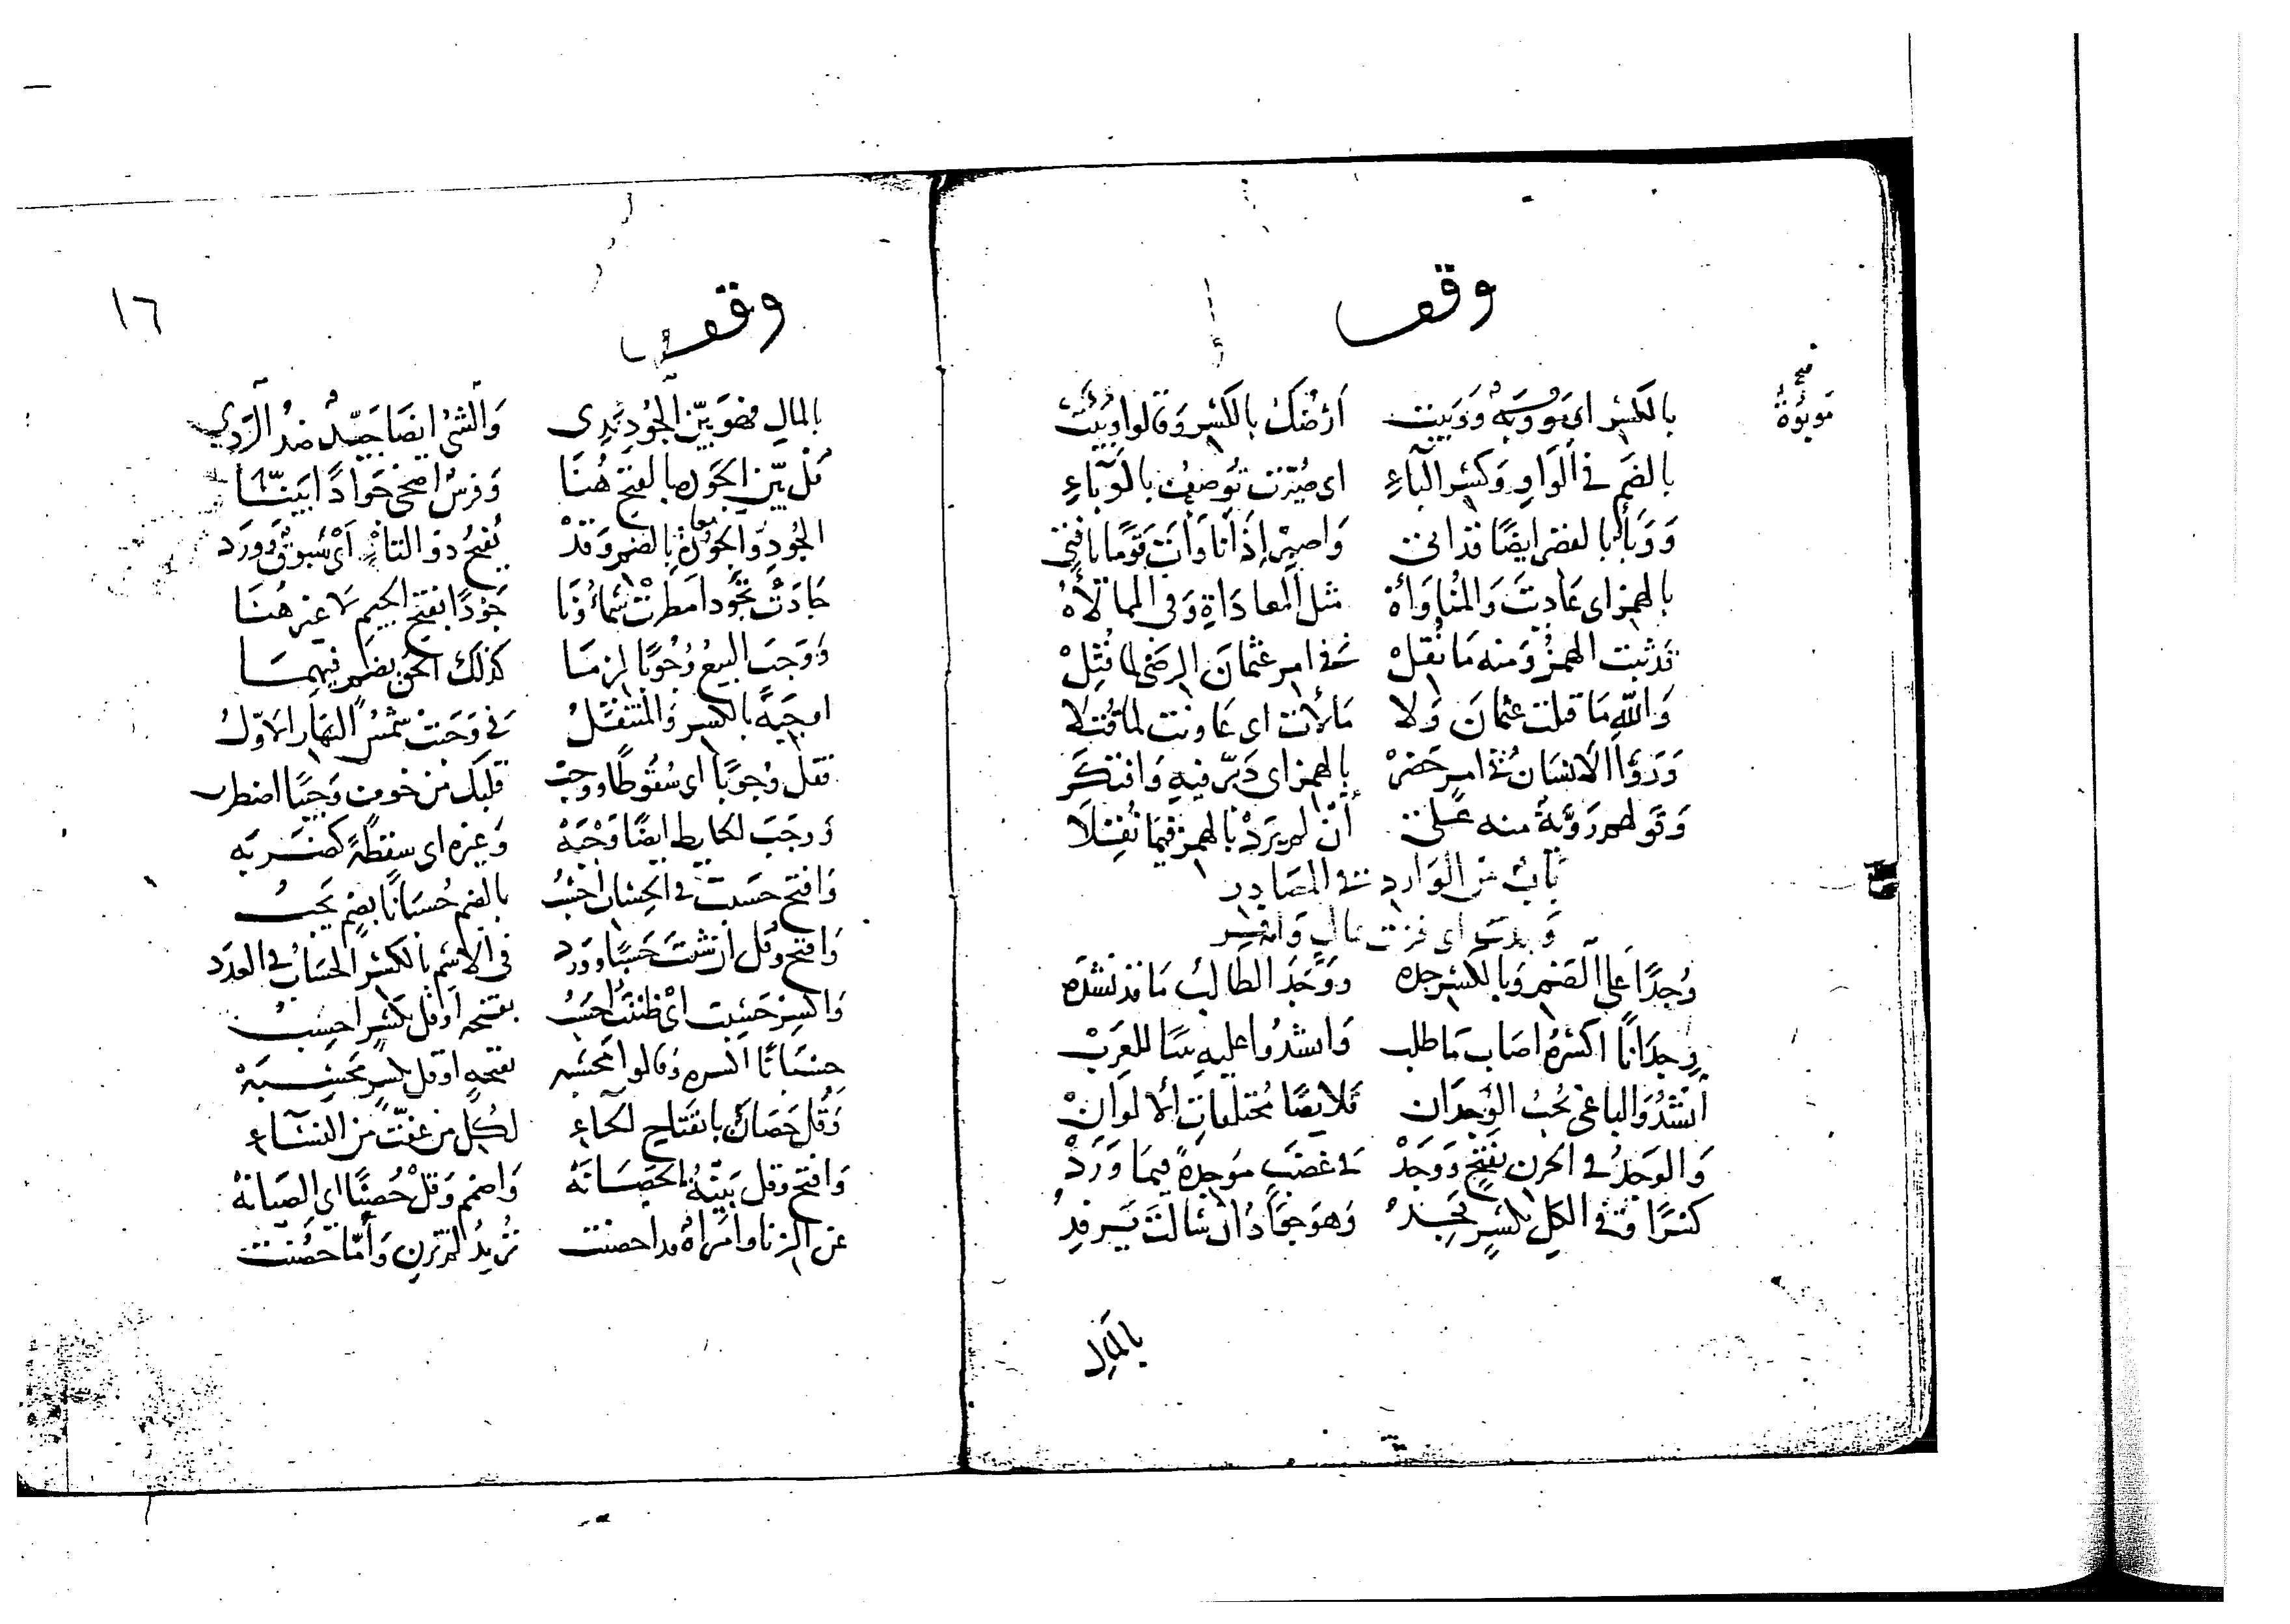 وقف
صح موبوة
بالكسر اى موبوه ووبيت ارضك بالكسر وقالوا وبيت
بالضم فى الواو وكسر الباء اى صيرت توصف بالوباء
ووبأ بالقصر ايضا قد اتى واصبر إذا ناوأت قوما يا فتى
بالهمز اى عاديت والمناوأة مثل المعاداة وفى الممالأه
قد ثبت الهمز ومنه ما نقل فى امر عثمان الرضى لما قتل
والله ما قتلت عثمان ولا مالأت اى عاونت لما قتلا
وروأ الانسان فى امر حضر بالهمز اى دبر فيه وافتكر
وقولهم روية منه على أن لم يرد بالهمز فيما نقلا
باب من الوارد فى المصادر
وجدت اى فزت بمال وافر
وجدا على الضم وبالكسر جده ووجد الطالب ما قد نشده
وجدانا اكسره اصاب ما طلب وانشدوا عليه بيتا للعرب
أنشد والباغى يحب الوجدان قلايصا مختلفات ألالوان
والوجد فى الحزن بفتح ووجد فى غضب موجدة فيما ورد
كسرا وفى الكل بكسر تجد وهو جواد ان سالت يرفد
بالمال
وقف
١٦
بالمال فهو بين الجود ندى والشئ ايضا جيد ضد الردي
قل بين الجودة بالفتح هنا وفرس اضحى جوادا بينا
الجود والجودة بالضم وقد تفتح ذو التا اى سبوق وورد
جادت تجود امطرت سماؤنا جودا بفتح الجيم لا غير هنا
ووجب البيع وجوبا لزما كذلك الحق بضم فيهما
اوجبة بالكسر والمنتقل فى وجبت شمس النهار الاول
فقل وجوبا اى سقوطا ووجب قلبك من خوف وجيبا اضطرب
ووجب الحايط ايضا وجبة وغيره اى سقطة كضربه
وافتح حسبت فى الحساب احسب بالضم حسبانا بضم يجب
وافتح وقل ان شئت حسبا وورد فى الاسم بالكسر الحساب فى العدد
واكسر حسبت اى ظننت احسب بفتحه او قل بكسر احسب
حسبانا اكسره وقالوا محسبه بفتحه او قل بكسر محسبة
وقل حصان بانفتاح الحاء لكل من عفت من النساء
وافتح وقل بينة الحصانة واضمم وقل حصنا اى الصيانة
عن الزنا وامرأة قد احصنت تريد للتزين وأما حصنت